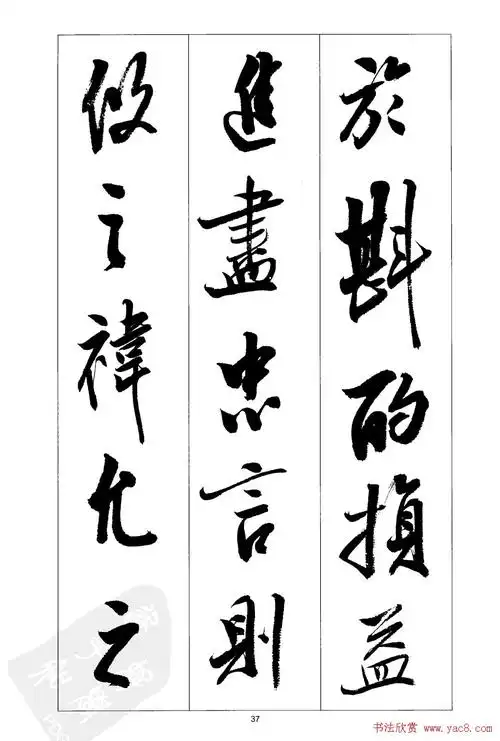 於斟酌損益
進盡忠言則
攸之禕允之
37
书法欣赏 www.yac8.com